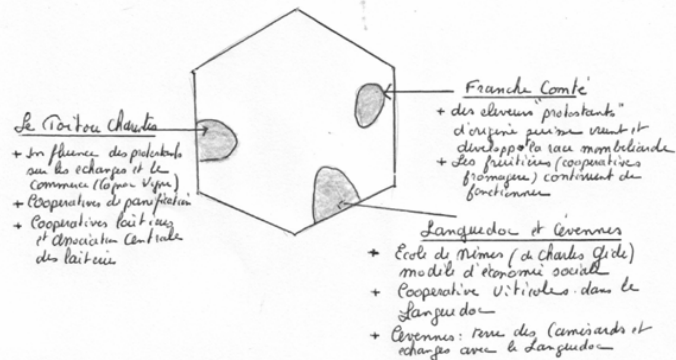 Le Poitou Charentes
+ Influence des protestants
sur les echanges et le
commerce (Cognac Vigne)
+ Cooperatives de panification
+ Cooperatives laitieres
et Association Centrale
des laiterie
Franche Comté
+ des eleveurs "protestants"
d'origine suisse vienent et
développe la race montbeliarde
+ Les fruitières (cooperatives
fromagere) continuent de
fonctionner
Languedoc et Cévennes
+ Ecole de Nimes (de Charles Gide)
modèle d'économie sociale
+ Cooperative viticoles dans le
Languedoc
+ Cévennes : terre des Camisards et
echanges avec le Languedoc